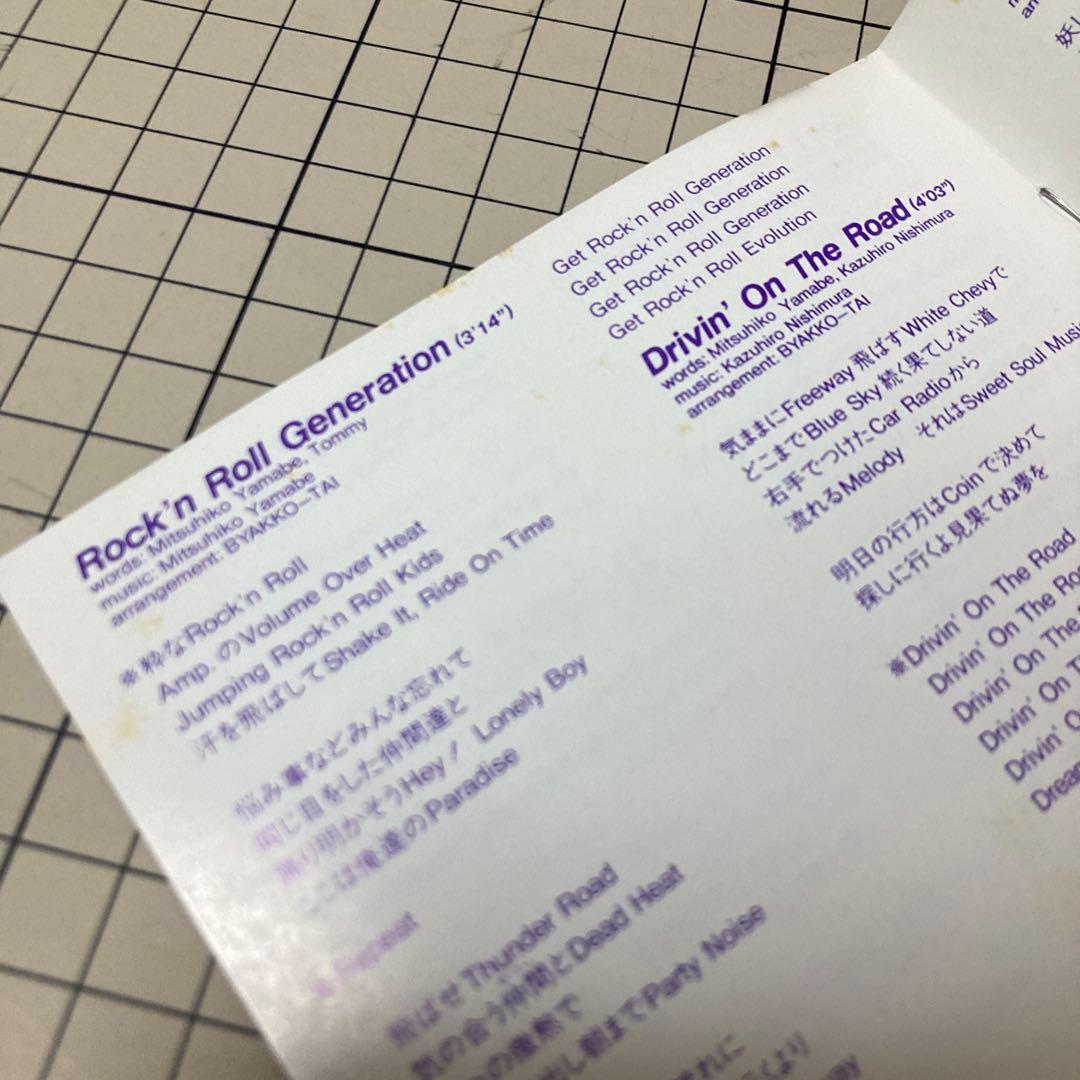 Rock'n Roll Generation (3'14")
words: Mitsuhiko Yamabe, Tommy
music: Mitsuhiko Yamabe
arrangement: BYAKKO–TAI
※粋なRock'n Roll
Amp.のVolume Over Heat
Jumping Rock'n Roll Kids
汗を飛ばしてShake It, Ride On Time
悩み事などみんな忘れて
同じ目をした仲間達と
踊り明かそうHey! Lonely Boy
ここは俺達のParadise
※Repeat
飛ばせThunder Road
気の合う仲間とDead Heat
出し朝までParty Noise
Get Rock'n Roll Generation
Get Rock'n Roll Generation
Get Rock'n Roll Generation
Get Rock'n Roll Evolution
Drivin' On The Road (4'03")
words: Mitsuhiko Yamabe, Kazuhiro Nishimura
music: Kazuhiro Nishimura
arrangement: BYAKKO–TAI
気ままにFreeway 飛ばすWhite Chevyで
どこまでBlue Sky続く果てしない道
右手でつけたCar Radioから
流れるMelody それはSweet Soul Music
明日の行方はCoinで決めて
探しに行くよ見果てぬ夢を
※Drivin' On The Road
Drivin' On The Road
Drivin' On The
Drivin' On
Drivin'